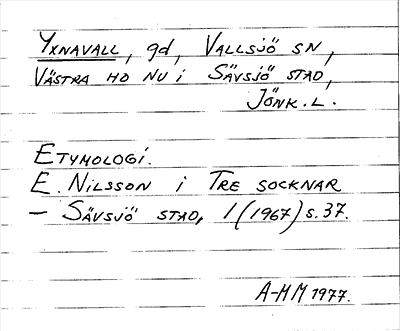 YXNAVALL, gd, VALLSJÖ SN,
VÄSTRA HD NU i SÄVSJÖ STAD,
JÖNK.L.
ETYMOLOGI.
E. NILSSON i TRE SOCKNAR
– SÄVSJÖ STAD, 1(1967) s.37.
A-MM 1977.